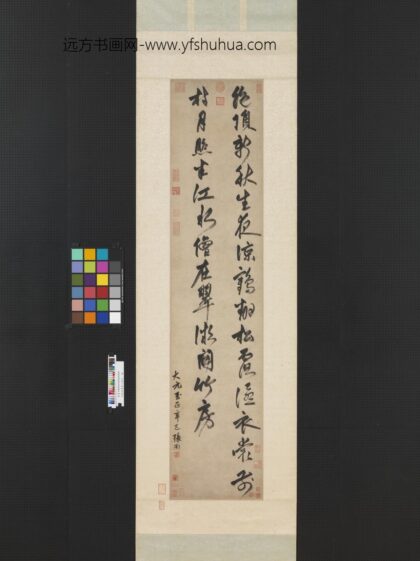 远方书画网-www.yfshuhua.com
絶頂新秋生夜涼鶴翻松露滴衣裳前
村月照半江水僧在翠微開竹房
大元至正辛巳張雨